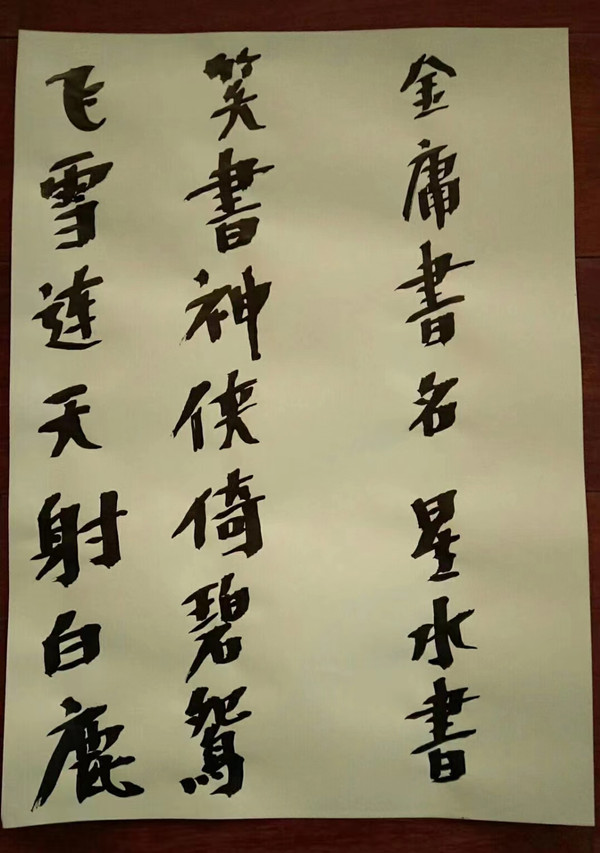 飞雪連天射白鹿
笑書神侠倚碧鴛
金庸書名 星水書